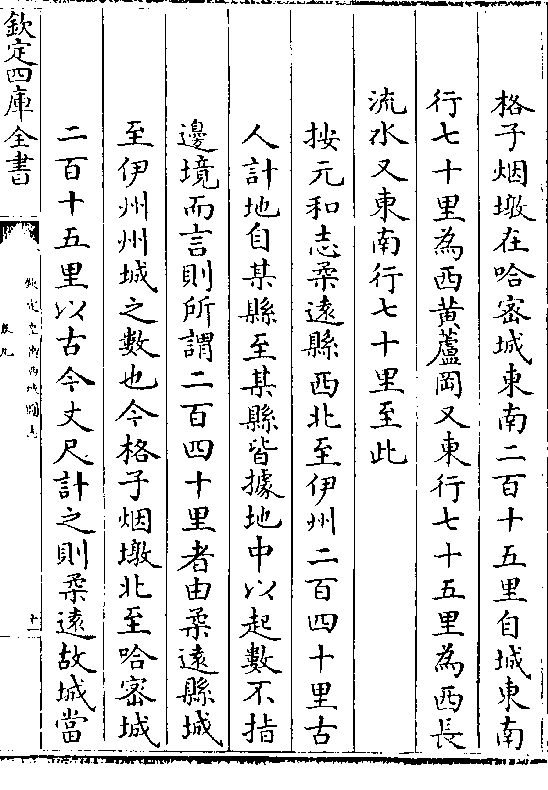 格子烟墩在哈密城東南二百十五里自城東南
行七十里為西黄蘆岡又東行七十五里為西長
流水又東南行七十里至此
按元和志柔逺縣西北至伊州二百四十里古
人計地自某縣至某縣皆據地中以起數不指
邊境而言則所謂二百四十里者由柔逺縣城
至伊州州城之數也今格子烟墩北至哈密城
二百十五里以古今丈尺計之則柔逺故城當
欽定四庫全書
欽定皇輿西域圖志
卷九
十